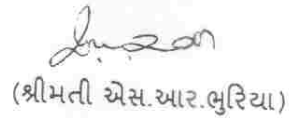 (શ્રીમતી એસ.આર.ભુરિયા)